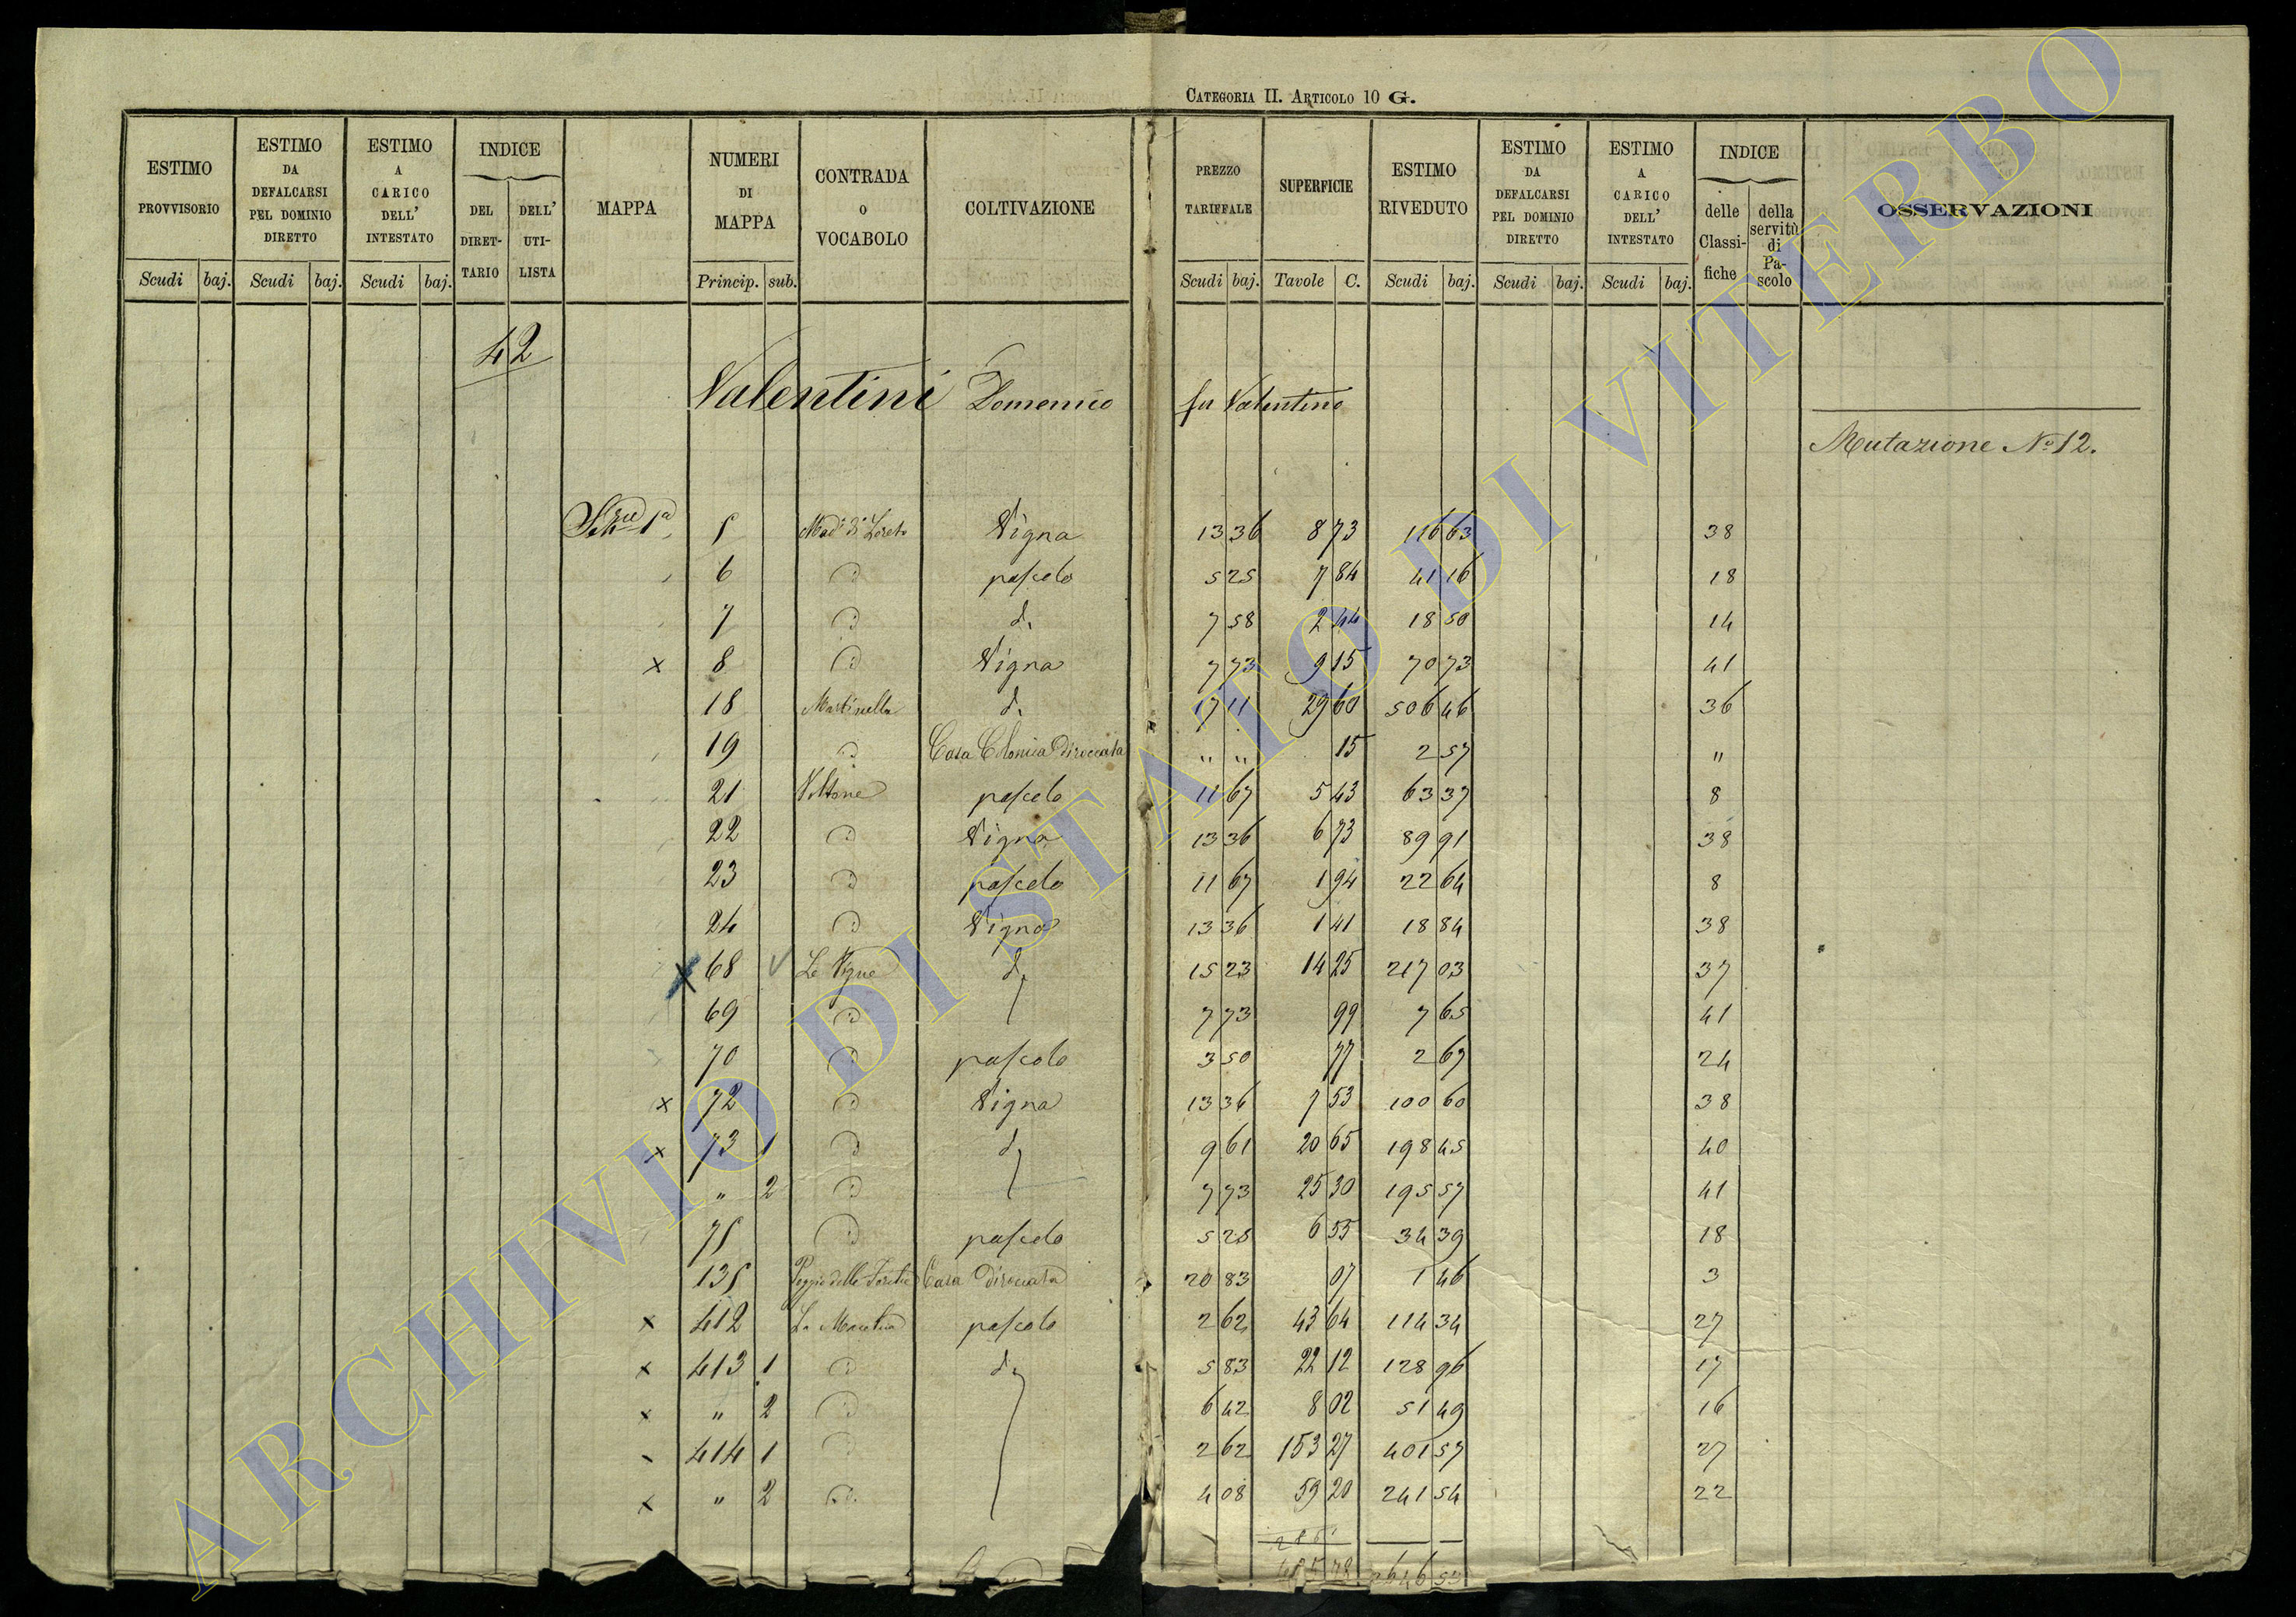 CATEGORIA II. ARTICOLO 10 G.
ESTIMO PROVVISORIO Scudi baj.
ESTIMO DA DEFALCARSI PEL DOMINIO DIRETTO Scudi baj.
ESTIMO A CARICO DELL' INTESTATO Scudi baj.
INDICE DEL DIRET-TARIO DELL' UTI-LISTA
MAPPA
NUMERI DI MAPPA Princip. sub.
CONTRADA O VOCABOLO
COLTIVAZIONE
PREZZO TARIFFALE Scudi baj.
SUPERFICIE Tavole C.
ESTIMO RIVEDUTO Scudi baj.
ESTIMO DA DEFALCARSI PEL DOMINIO DIRETTO Scudi baj.
ESTIMO A CARICO DELL' INTESTATO Scudi baj.
INDICE delle Classi-fiche della servitù di Pa-scolo
OSSERVAZIONI
42
Valentini Domenico fu Valentino
Mutazione No 12.
5 Mad.a di Loreto Vigna 13 36 8 73 116 63 38
6 d pascolo 5 25 7 84 41 16 18
7 d d. 7 58 2 44 18 50 14
x 8 d Vigna 7 73 9 15 70 73 41
18 Martinella d. 17 11 29 60 506 46 36
19 d Casa Colonica diroccata " " 15 2 57 "
21 Voltone pascolo 11 67 5 43 63 37 8
22 d Vigna 13 36 6 73 89 91 38
23 d pascolo 11 67 1 94 22 64 8
24 d Vigna 13 36 1 41 18 84 38
x 68 Le Vigne d. 15 23 14 25 217 03 37
69 d 7 73 99 7 65 41
70 d pascolo 3 50 77 2 69 24
x 72 d Vigna 13 36 7 53 100 60 38
x 73 1 d d. 9 61 20 65 198 45 40
" 2 d 7 73 25 30 195 57 41
75 d pascolo 5 25 6 55 34 39 18
135 Poggio delle Casa diroccata 20 83 07 1 46 3
x 412 La pascolo 2 62 43 64 114 34 27
x 413 1 d d. 5 83 22 12 128 96 17
x " 2 d 6 42 8 02 51 49 16
414 1 d 2 62 153 27 401 57 27
x " 2 d. 4 08 59 20 241 54 22
ARCHIVIO DI STATO DI VITERBO